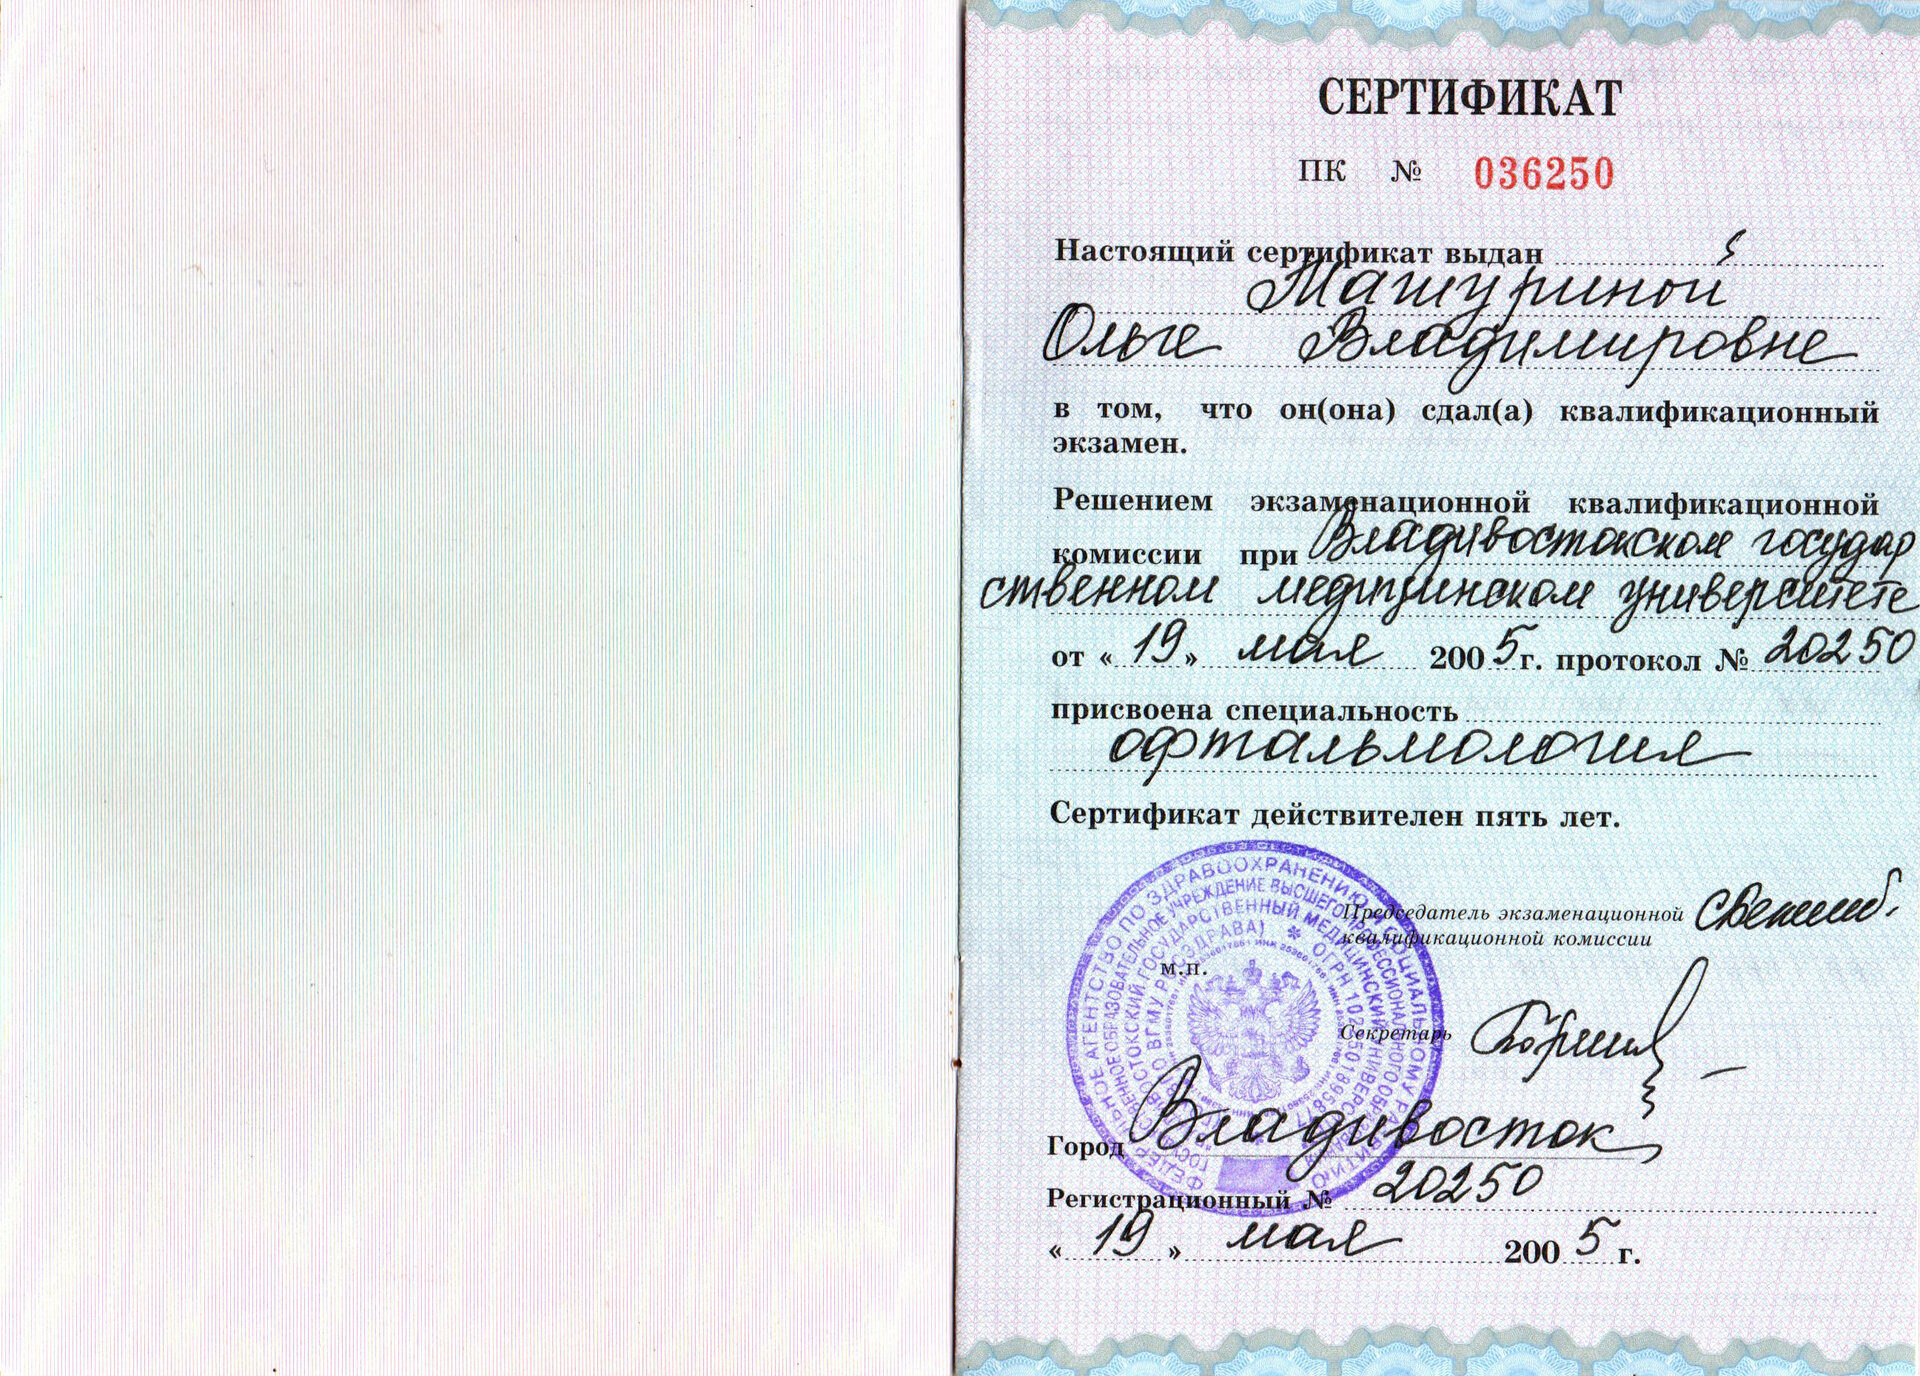 СЕРТИФИКАТ
ПК № 036250
Настоящий сертификат выдан
Машуриной
Ольге Владимировне
в том, что он(она) сдал(а) квалификационный
экзамен.
Решением экзаменационной квалификационной
комиссии при Владивостокском государ
ственном медицинском университете
от « 19 » мая 2005 г. протокол № 20250
присвоена специальность
офтальмология
Сертификат действителен пять лет.
Председатель экзаменационной
квалификационной комиссии
м.п.
Секретарь
Город Владивосток
Регистрационный № 20250
« 19 » мая 2005 г.
ФЕДЕРАЛЬНОЕ АГЕНТСТВО ПО ЗДРАВООХРАНЕНИЮ И СОЦИАЛЬНОМУ РАЗВИТИЮ
ОБРАЗОВАТЕЛЬНОЕ УЧРЕЖДЕНИЕ ВЫСШЕГО ПРОФЕССИОНАЛЬНОГО ОБРАЗОВАНИЯ
ГОСУДАРСТВЕННЫЙ МЕДИЦИНСКИЙ УНИВЕРСИТЕТ
ВГМУ РОСЗДРАВА) * ОГРН 1022501895877